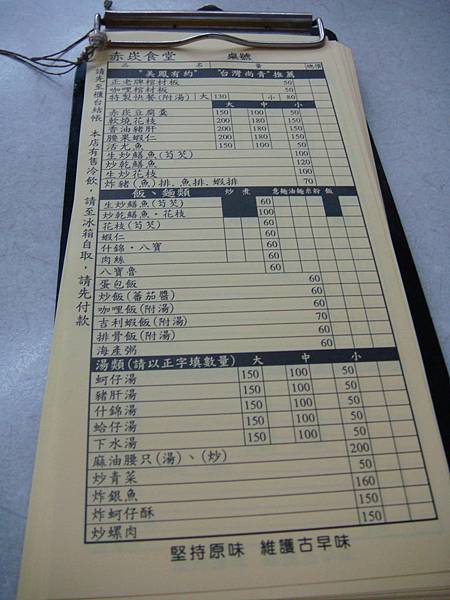 赤崁食堂 桌號
品 名 量 總價
"美鳳有約" "台灣尚青"推薦
正老牌棺材板 50
咖哩棺材板 50
特製快餐(附湯) 大 130 小 80
大 中 小
赤崁豆腐羹 150 100 50
軟燒花枝 200 180 150
香油豬肝 200 180 150
腰果蝦仁 200 180 150
活尤魚 150 100 50
生炒鱔魚(芶芡) 100
炒乾鱔魚 120
生炒花枝 100
炸豬(魚)排、魚排、蝦排 70
飯、麵類 炒 煮 意麵 油麵 米粉 飯
生炒鱔魚(芶芡) 60
炒乾鱔魚・花枝 100
花枝(芶芡) 60
蝦仁 60
什錦・八寶 60
肉絲 60
八寶魯 60
蛋包飯 60
炒飯(蕃茄醬) 60
咖哩飯(附湯) 60
吉利蝦飯(附湯) 70
排骨飯(附湯) 60
海產粥 60
湯類(請以正字填數量) 大 中 小
蚵仔湯 150 100 50
豬肝湯 150 100 50
什錦湯 150 100 50
蛤仔湯 150 100 50
下水湯 150 100 50
麻油腰只(湯)、(炒) 200
炒青菜 50
炸銀魚 160
炸蚵仔酥 150
炒螺肉 150
堅持原味 維護古早味
請先至櫃台結帳 本店有售冷飲，請至冰箱自取，請先付款